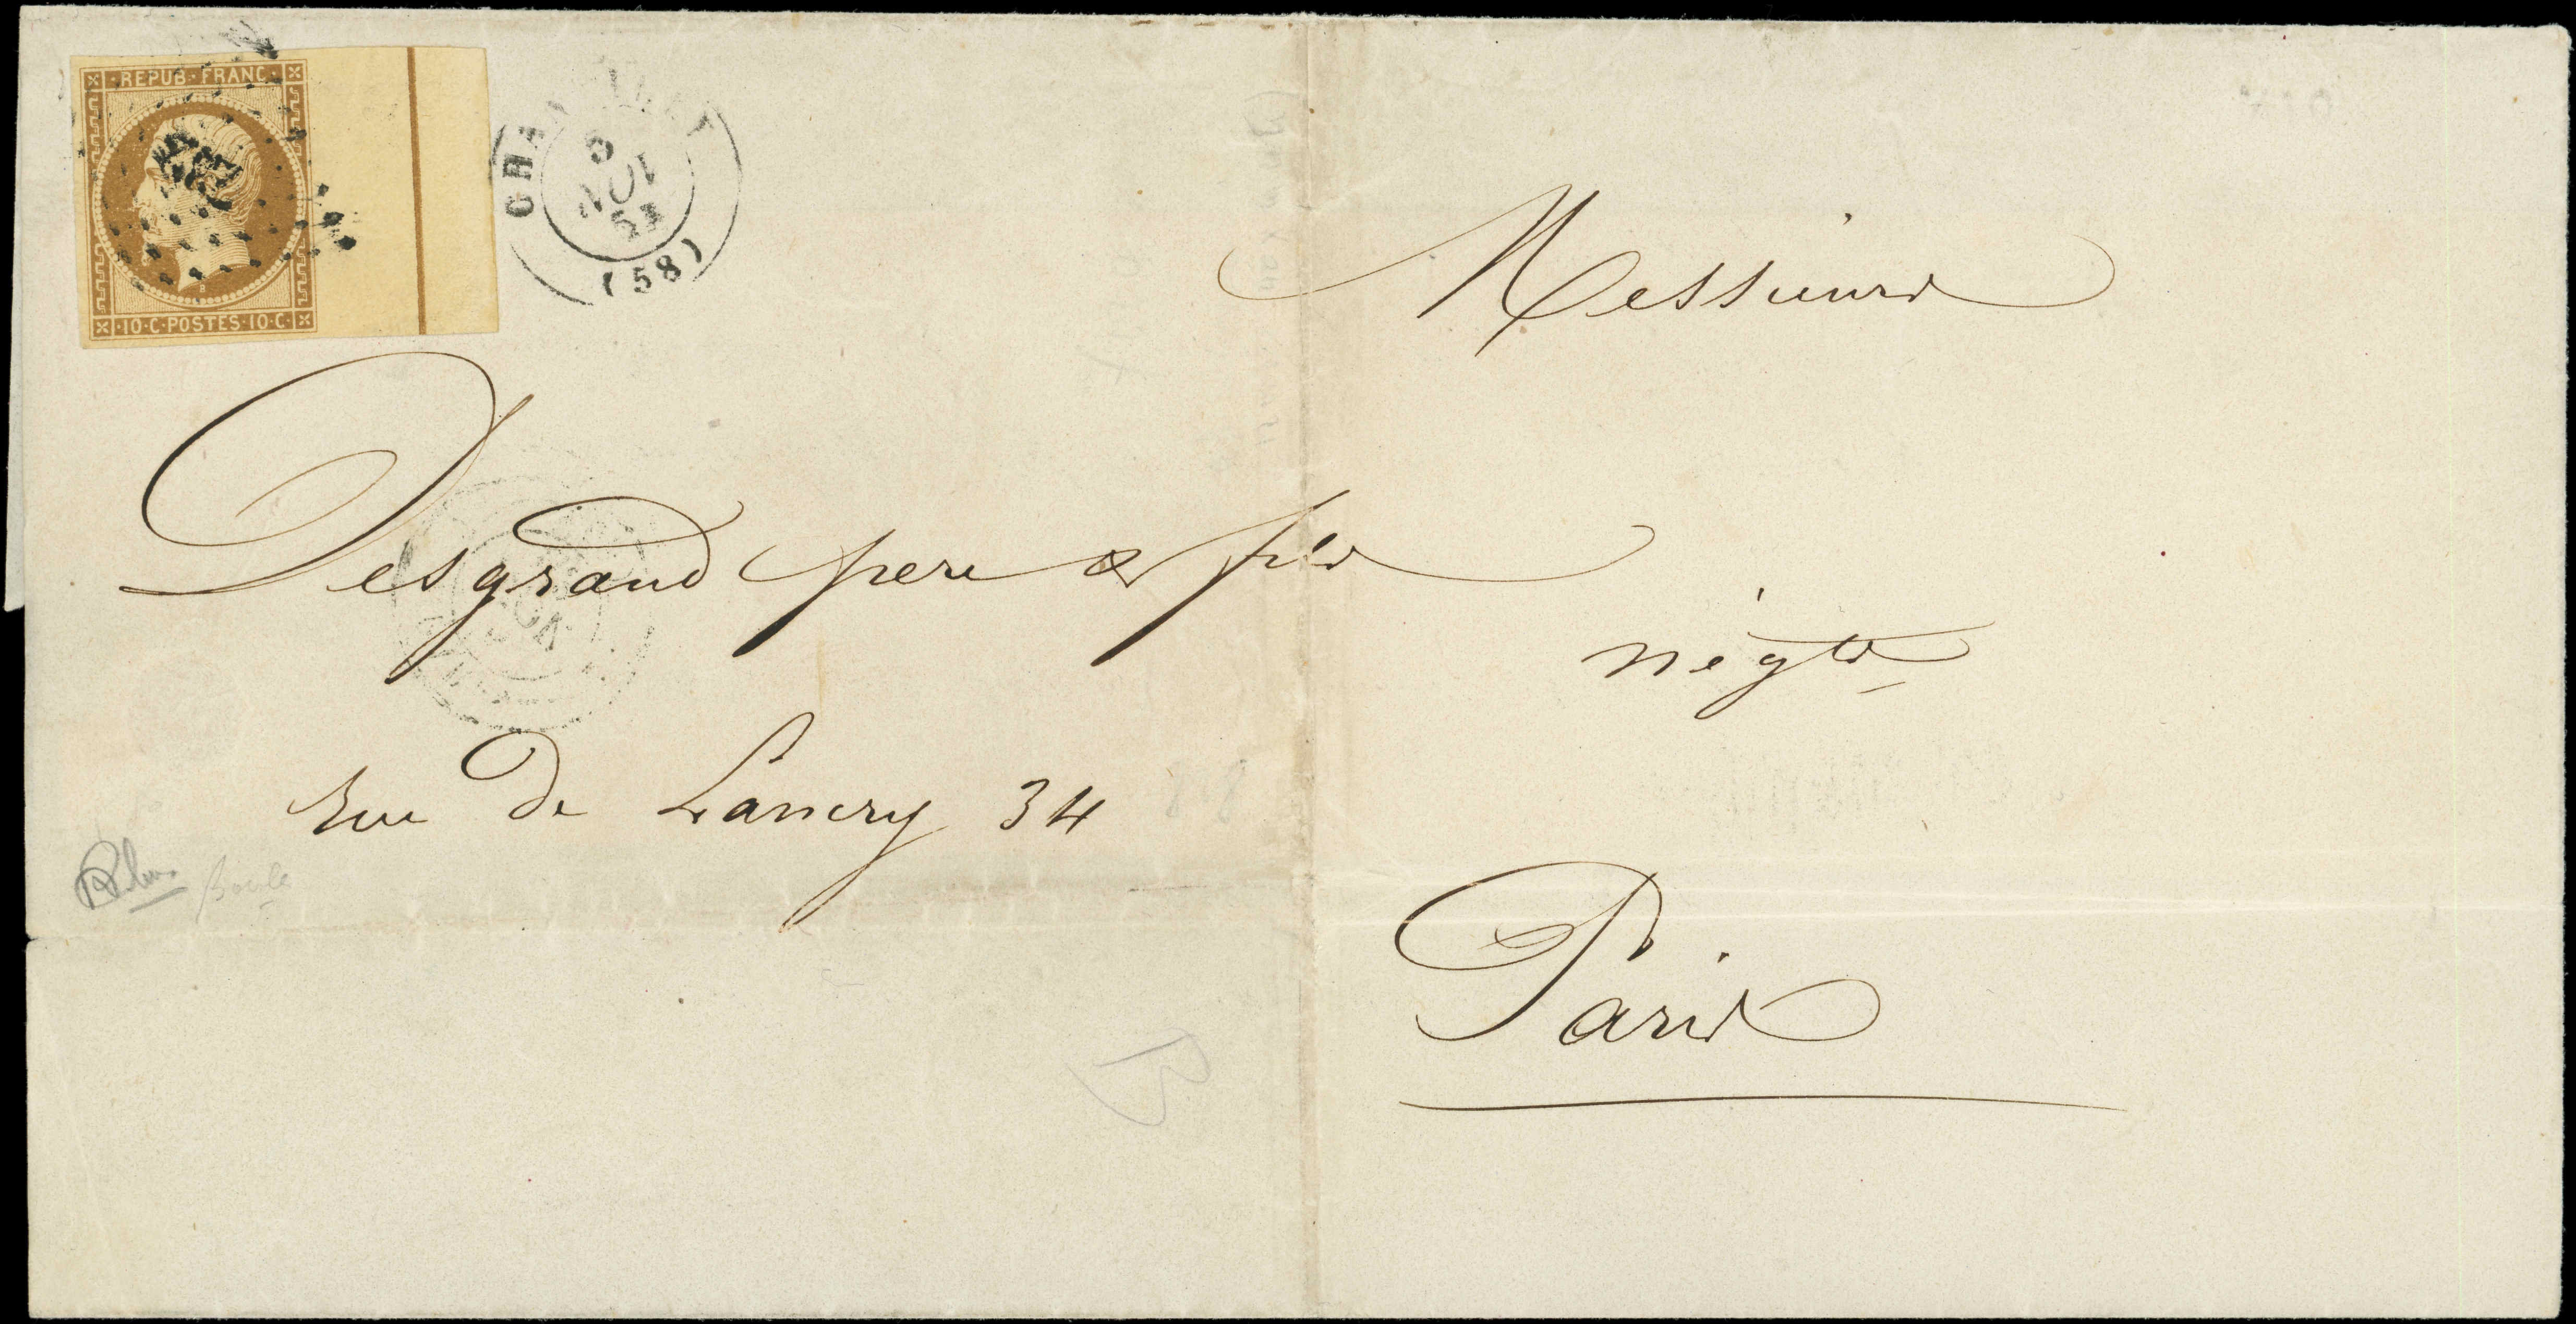 REPUB·FRANC·
·10·C·POSTES·10·C·
5
AOU
53
(58)
Messieurs
Desgrand pere & fils
négts
rue de Lancry 34
Paris
Boule